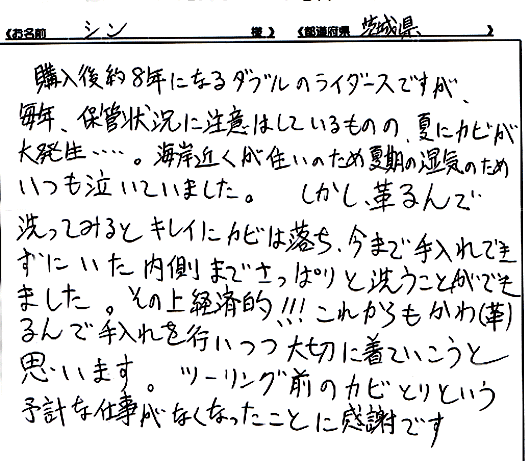 《お名前 シン 様》 《都道府県 茨城県 》
購入後約8年になるダブルのライダースですが、
毎年、保管状況に注意はしているものの、夏にカビが
大発生……。海岸近くが住いのため夏期の湿気のため
いつも泣いていました。 しかし、革るんで
洗ってみるとキレイにカビは落ち、今まで手入れでき
ずにいた内側までさっぱりと洗うことができ
ました。その上経済的!!!これからもかわ(革)
るんで手入れを行いつつ大切に着ていこうと
思います。ツーリング前のカビとりという
予計な仕事がなくなったことに感謝です